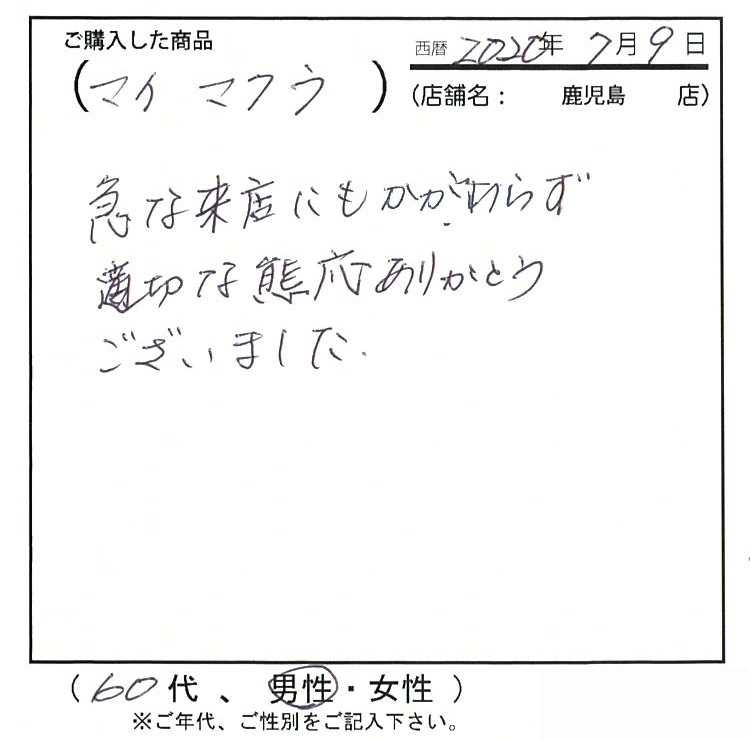 ご購入した商品
西暦 2020年 7月 9日
(マイ マクラ)
(店舗名： 鹿児島 店)
急な来店にもかかわらず
適切な態応ありがとう
ございました.
(60代、男性・女性)
※ご年代、ご性別をご記入下さい。